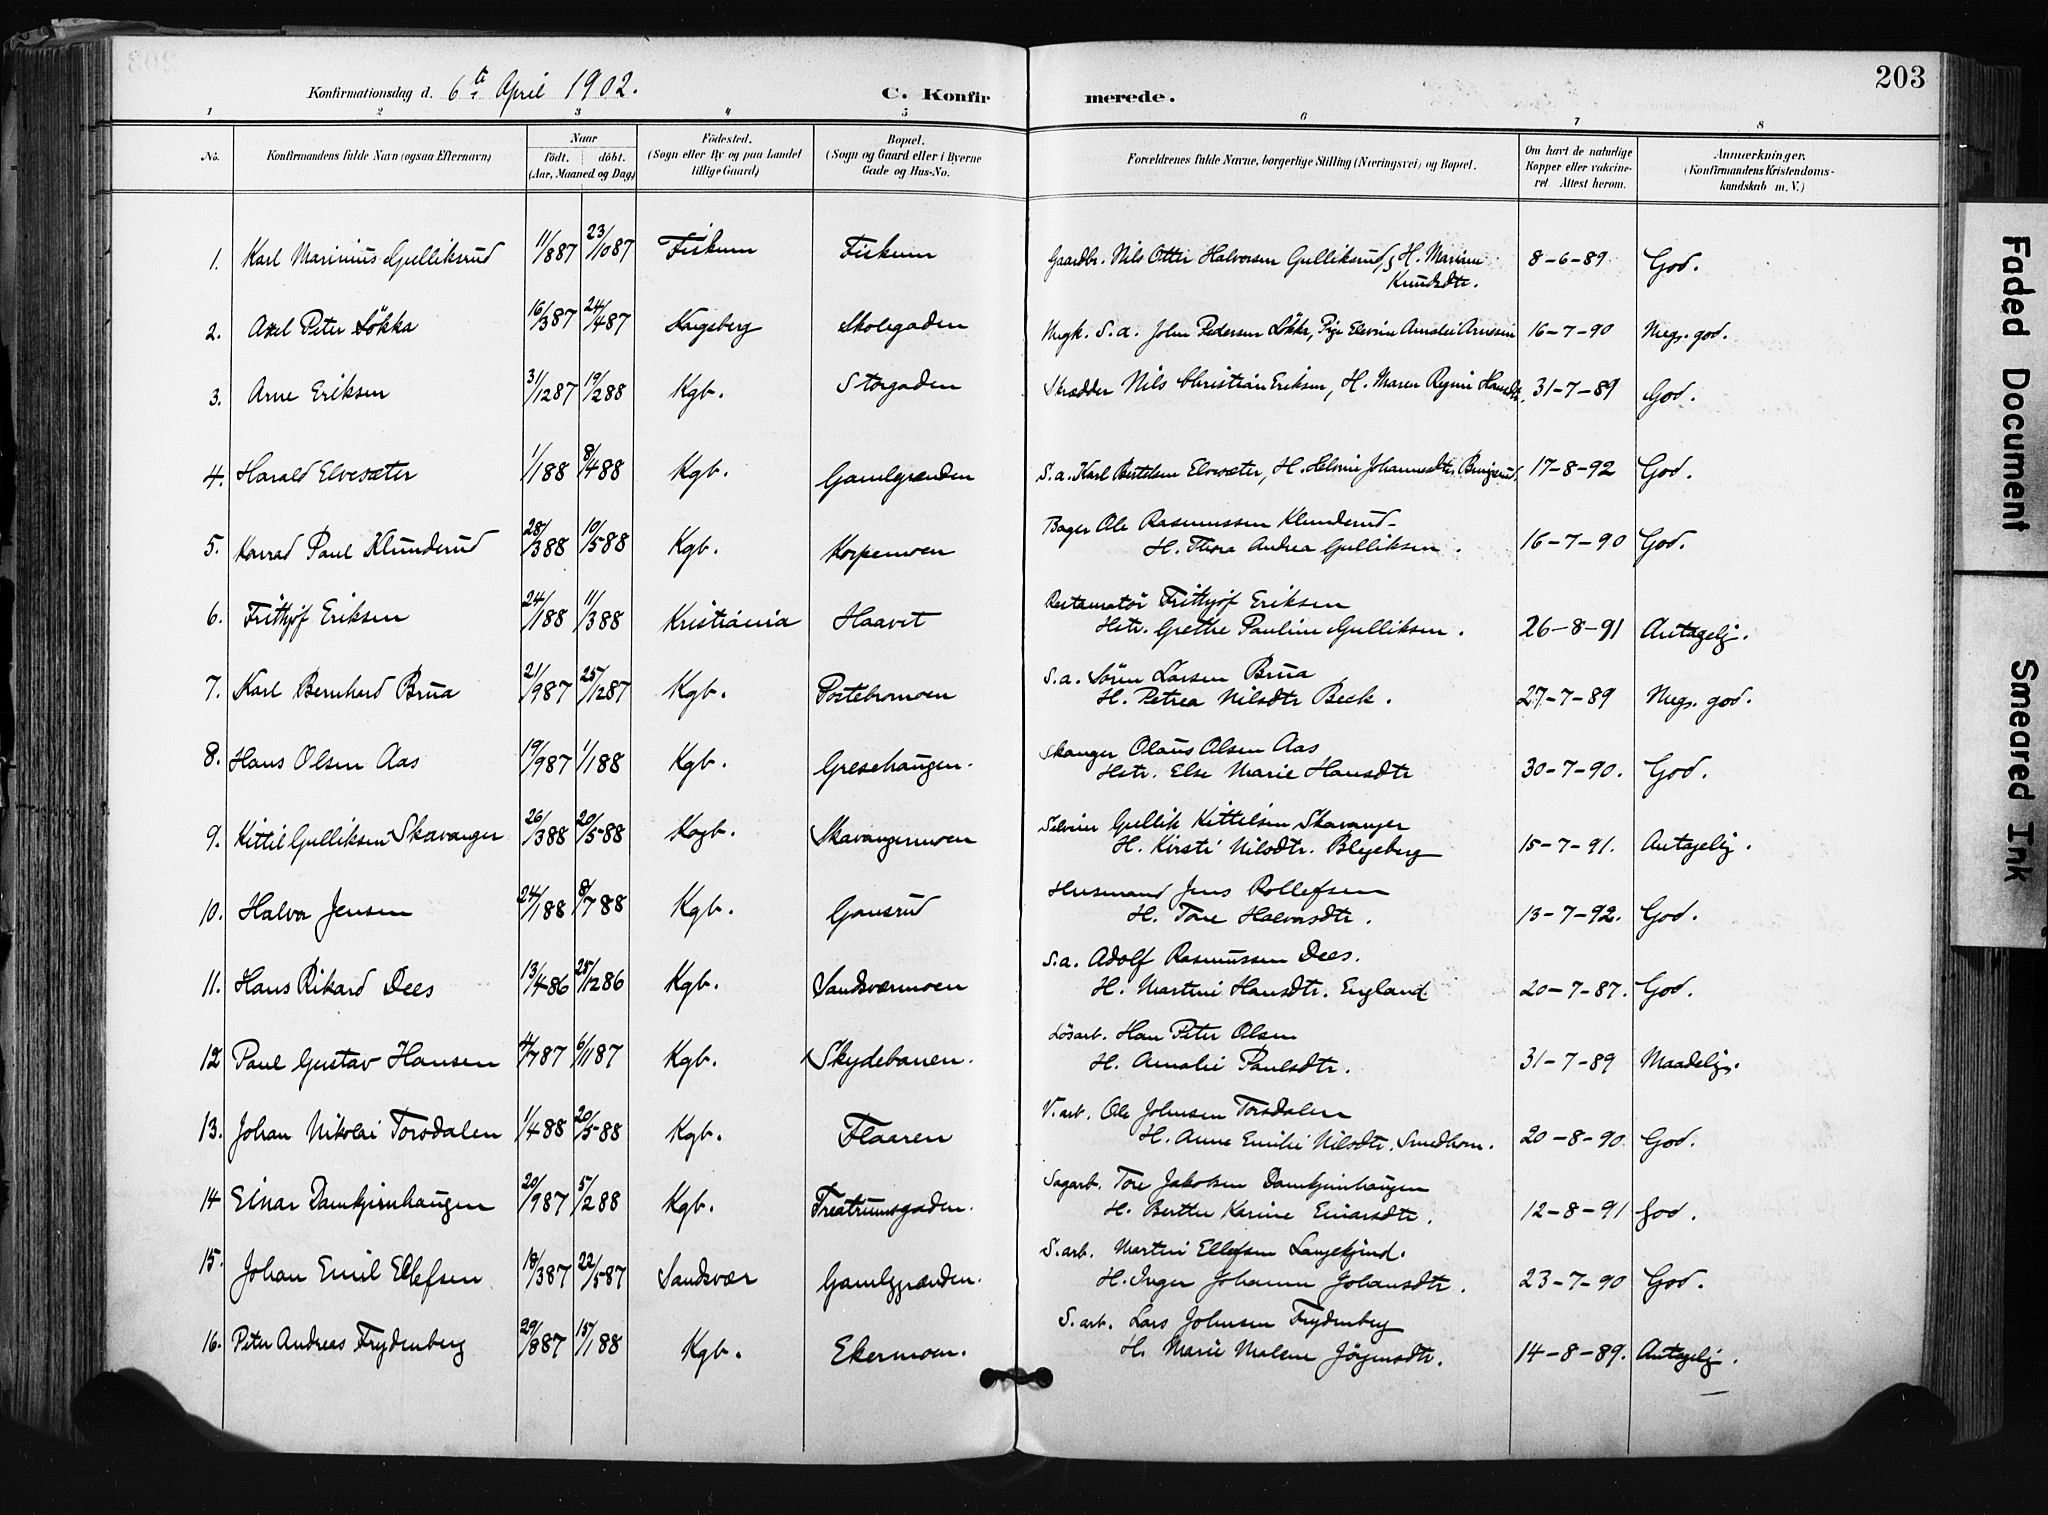 203
Konfirmationsdag d. 6te April 1902. C. Konfirmerede.
1 2 3 4 5 6 7 8
No. Konfirmandens fulde Navn (ogsaa Efternavn) Naar födt. döbt. (Aar, Maaned og Dag) Födested. (Sogn eller By og paa Landet tillige Gaard) Bopæl. (Sogn og Gaard eller i Byerne Gade og Hus-No. Forældrenes fulde Navne, borgerlige Stilling (Næringsvei) og Bopæl. Om havt de naturlige Kopper eller vakcineret Attest herom. Anmærkninger. (Konfirmandens Kristendomskundskab m. V.)
1. Karl Marinius Gulliksrud 11/887 23/1087 Fiskum Fiskum Gaardbr. Nils Otter Halvorsen Gulliksrud, H. Marine 8-6-89 God.
Knudsdtr.
2. Axel Peter Løkka 16/387 24/487 Kongsberg Skolegaden Ungk. S. a. John Pedersen Løkke, Pige Elevine Amalie Arnesen 16-7-90 Meg. god.
3. Arne Eriksen 31/1287 19/288 Kgb. Storgaden Skrædder Nils Christian Eriksen, H. Maren Regine Hansdtr. 31-7-89 God.
4. Harald Elvesæter 1/188 8/488 Kgb. Gamlegrænden S. a. Karl Bertelsen Elvesæter, H. Helene Johannesdtr. 17-8-92 God.
5. Konrad Paul Klunderud 28/388 10/588 Kgb. Korpemoen Bager Ole Rasmussen Klunderud
H. Thora Andrea Gulliksen. 16-7-90 God.
6. Frithjof Eriksen 24/188 11/388 Kristiania Haavet Restauratør Frithjof Eriksen
Hstr. Grethe Pauline Gulliksen. 26-8-91 Antagelig.
7. Karl Bernhard Brua 21/987 25/1287 Kgb. Portebromoen S. a. Sören Larsen Brua
H. Petrea Nilsdtr Beck. 27-7-89 Meg. god.
8. Hans Olsen Aas 19/987 1/188 Kgb. Gresehaugen. Skanger Olaus Olsen Aas
Hstr. Else Marie Hansdtr 30-7-90. God.
9. Kittil Gulliksen Skavanger 26/388 20/588 Kogb. Skavangermoen Selveier Gullik Kittilsen Skavanger
H. Kirsti Nilsdtr. Blyeberg 15-7-91. Antagelig.
10. Halvor Jensen 24/188 8/788 Kgb. Gamsrud Husmand Jens Rollefsen
H. Tore Halvorsdtr. 13-7-92. God.
11. Hans Rikard Dees 13/486 25/1286 Kgb. Sandsværmoen S. a. Adolf Rasmussen Dees.
H. Martine Hansdtr. England 20-7-87. God.
12 Paul Gustav Hansen 4/787 6/1187 Kgb. Skydebanen. Løsarb. Han Peter Olsen
H. Amalie Paulsdtr. 31-7-89 Maadelig.
13. Johan Nikolai Torsdalen 1/488 20/588 Kgb. Flaaren V. arb. Ole Johnsen Torsdalen
H. Anne Emilie Nilsdtr. Smedhom. 20-8-90. God.
14 Einar Damkjernhaugen 20/987 5/288 Kgb. Treatrumsgaden. Sagarb. Tore Jakobsen Damkjernhaugen
H. Berthe Karine Einarsdtr. 12-8-91 God.
15. Johan Emil Ellefsen 18/387 22/587 Sandsvær Gamlegrænden. S. arb. Martin Ellefsen Langekjend.
H. Inger Johanne Johansdtr. 23-7-90 God.
16. Peter Andreas Frydenberg 29/887 15/188 Kgb. Ekermoen. S. arb. Lars Johnsen Frydenberg
H. Marie Malene Jörgensdtr. 14-8-89. Antagelig.
Faded Document
Smeared Ink